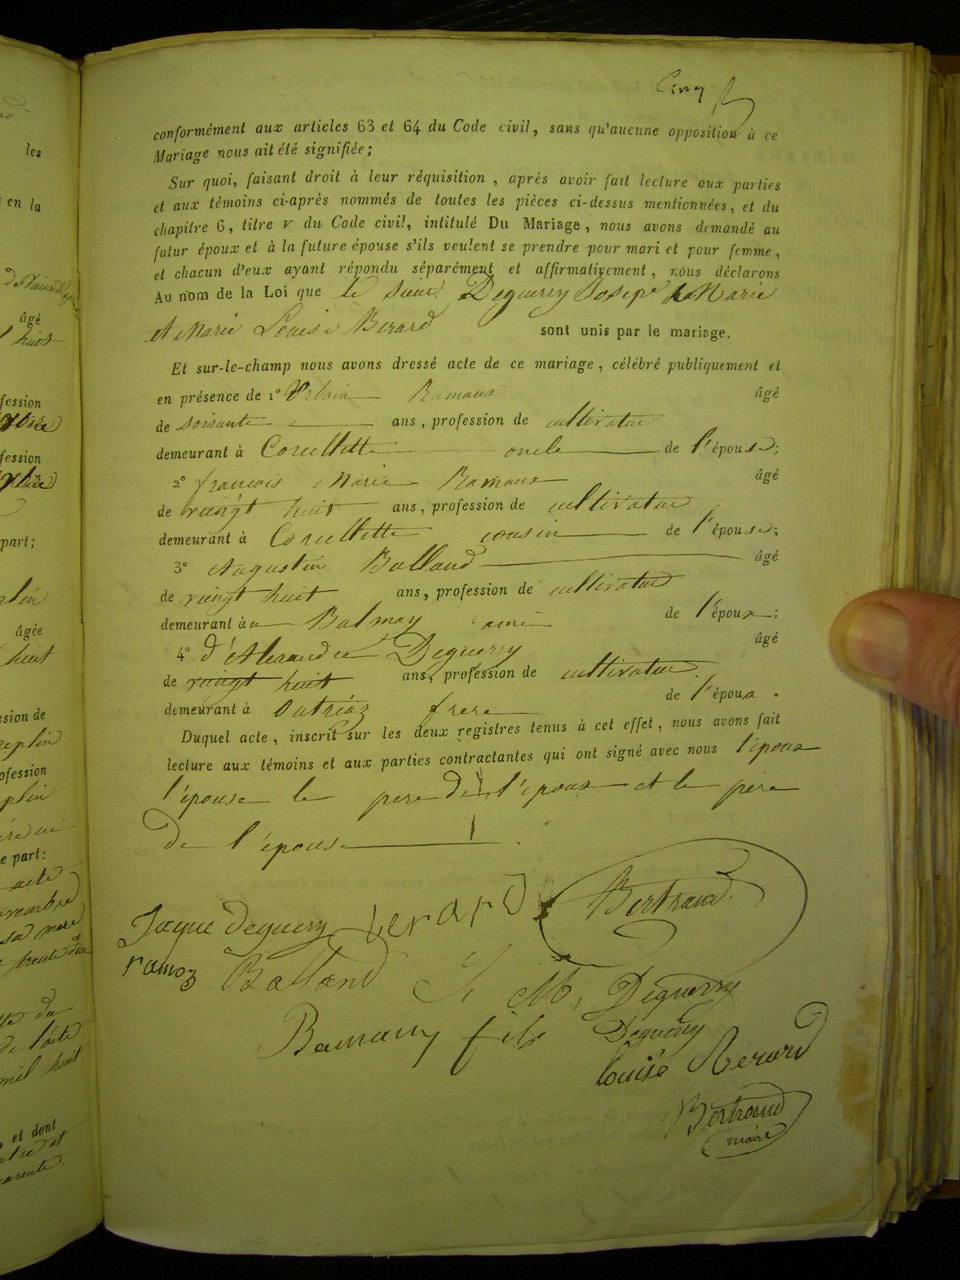 Cinq
conformément aux articles 63 et 64 du Code civil, sans qu'aucune opposition à ce
Mariage nous ait été signifiée;
Sur quoi, faisant droit à leur réquisition, après avoir fait lecture aux parties
et aux témoins ci-après nommés de toutes les pièces ci-dessus mentionnées, et du
chapitre 6, titre v du Code civil, intitulé Du Mariage, nous avons demandé au
futur époux et à la future épouse s'ils veulent se prendre pour mari et pour femme,
et chacun d'eux ayant répondu séparément et affirmativement, nous déclarons
Au nom de la Loi que le sieur Deguerry Joseph Marie
et Marie Louise Berard sont unis par le mariage.
Et sur-le-champ nous avons dressé acte de ce mariage, célébré publiquement et
en présence de 1° Urbain Ramaux âgé
de soisante ans, profession de cultivateur
demeurant à Corcellette oncle de l'épouse;
2° francois Marie Ramaux âgé
de vaingt huit ans, profession de cultivateur
demeurant à Corcellette cousin de l'épouse;
3° Augustin Balland âgé
de vaingt huit ans, profession de cultivateur
demeurant à au Balmay ami de l'époux;
4° d'Alexandre Deguerry âgé
de vaingt huit ans, profession de cultivateur
demeurant à Outriaz frere de l'époux.
Duquel acte, inscrit sur les deux registres tenus à cet effet, nous avons fait
lecture aux témoins et aux parties contractantes qui ont signé avec nous l'époux
l'épouse le pere de l'époux et le père
de l'épouse
Jaque deguerry berard Bertrand
ramoz Balland J. M. Deguerry
Ramaux fils Deguerry
louise Berard
Bertrand
maire
les
en la
âgé
huit
fession
fession
part;
âgée
huit
sion de
ofession
e part:
acte
sa mere
de l'acte
mil huit
et dont